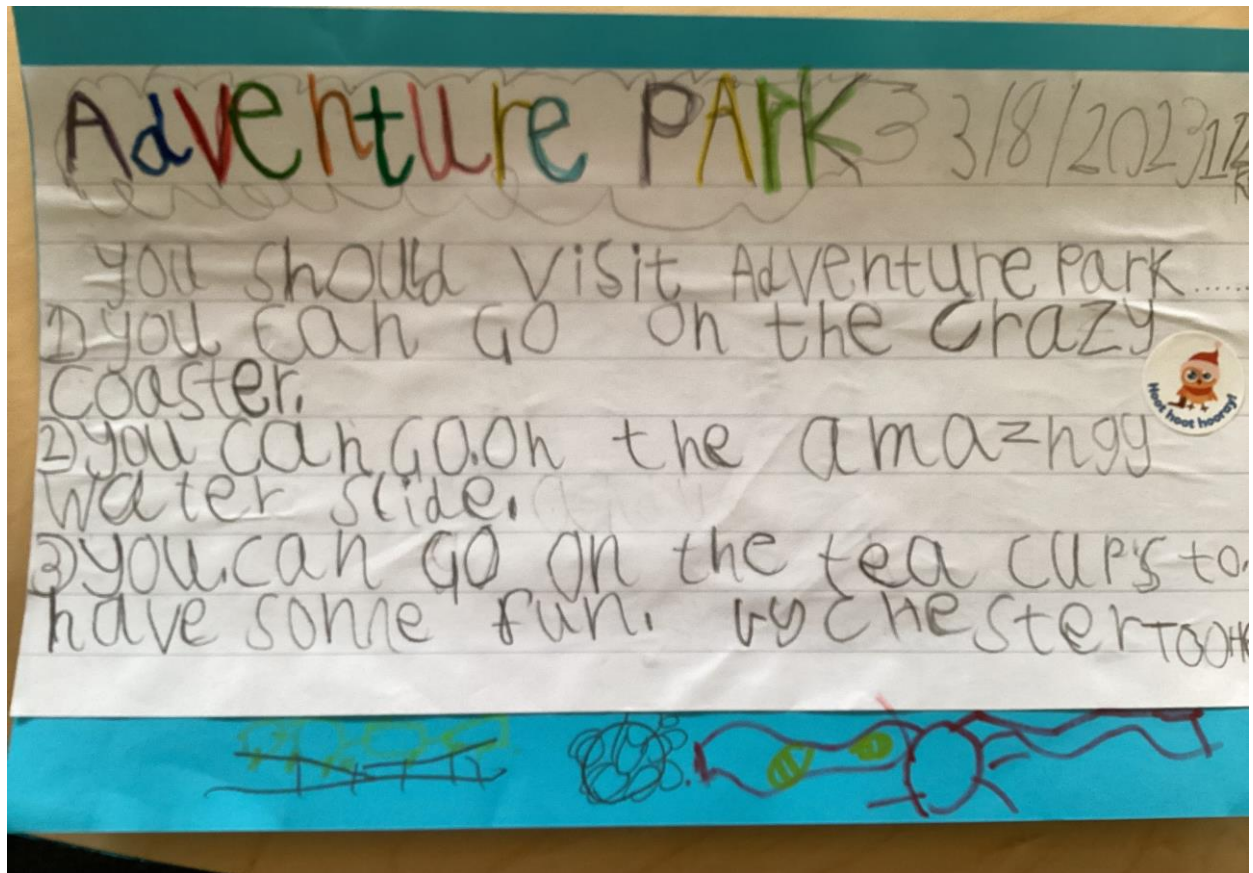 Adventure PArk 3/8/2023
you should visit Adventure Park......
1) you can Go on the crazy
coaster.
2) you can Go.on the amazngg
water slide.
3) you.can Go on the tea cups to.
have some fun. by Chester
Hoot hoot hooray!